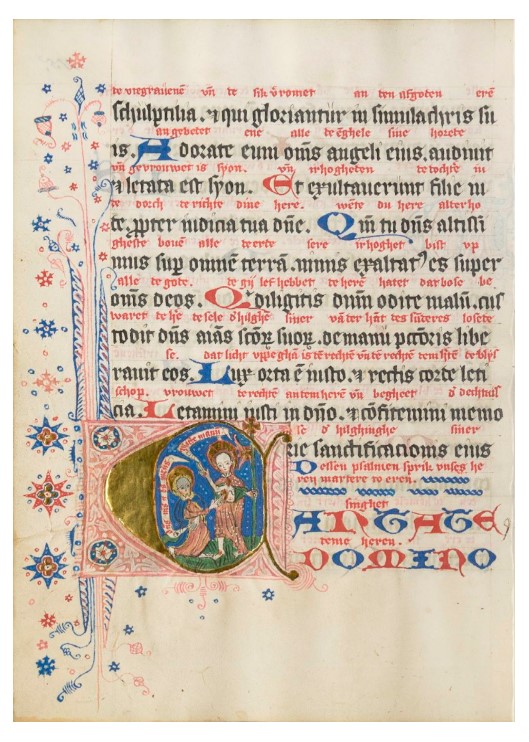 te vtegrauenē vñ te sik v̓romet an ten afgoten erē
sculptilia. ⁊ qui gloriantur in simulachris su
an gebetet ene alle te ēghele sine horete
is. Adorate eum om̄s angeli eius. audiuit
vñ gevrouwet is syon. vñ irhogheten te tochte iu
⁊ letata est syon. Et exultauerunt filie iu
te dorch te richte dine here. wēte du here alterho
te. ꝓpter iudicia tua dn̄e. Qm̄ tu dn̄s altissi
gheste bouē alle te erte sere irhoghet bist vp
mus sup̲ omnem terrā. nimis exaltat᷒ es super
alle te gote. te gij lef hebbet te herē hatet dar bose be
om̄s deos. Qui diligitis dnm̄ odite malū. cus
waret te he te sele d'hilghē siner vā ter hāt tes sūteres losete
todit dn̄s aīas scōꝝ suoꝝ. de manu pctōris libe
se. dat licht vp̲geghā is tē rechtē vñ tē rechtē tem hertē te blijs
rauit eos. Lux orta ē iusto. ⁊ rectis corde leti
schop. vrouwet te rechtē an tem herē vñ begheet d' dechtnis
cia. Letamini iusti in dn̄o. ⁊ cōfitemini memo
se d' hilghinghe siner
rie sanctificacionis eius
Dessen psalmen sprik vnses he
ren martere to eren.
singhet
CANTATE
teme heren.
DOMINO